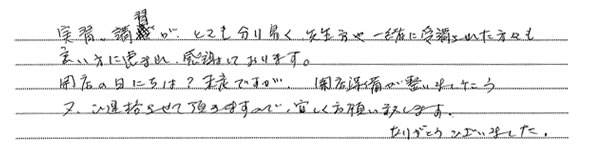 実習、講習が、とても分り易く、先生方や一緒に受講された方々も
良い方に恵まれ、感謝しております。
開店の日にちは?未定ですが、開店準備が整いましたら
又、ご連絡させて頂きますので、宜しくお願い致します。
ありがとうございました。